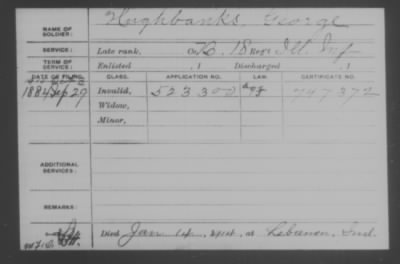 NAME OF SOLDIER: Hughbanks, George
SERVICE: Late rank, Co. B, 18 Reg't Ill. Inf
TERM OF SERVICE: Enlisted , 1 Discharged , 1
DATE OF FILING. CLASS. APPLICATION NO. LAW. CERTIFICATE NO.
1884 Sep 29 Invalid, 523300 747372
Widow,
Minor,
ADDITIONAL SERVICES:
REMARKS:
Died Jan 14, at Lebanon, Ind.